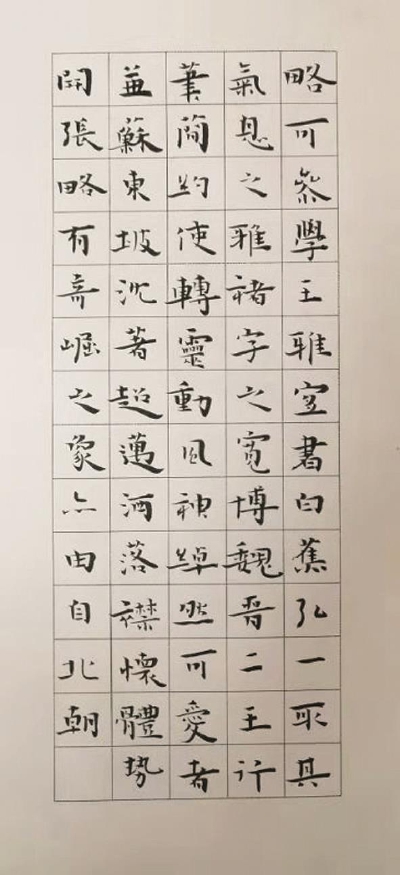 略可叅學王雅宜書白蕉弘一取其
氣息之雅褚字之寬博魏晉二王行
筆簡約使轉靈動風神綽然可愛者
並蘇東坡沈著超邁洒落襟懷體勢
開張略有奇崛之象亦由自北朝